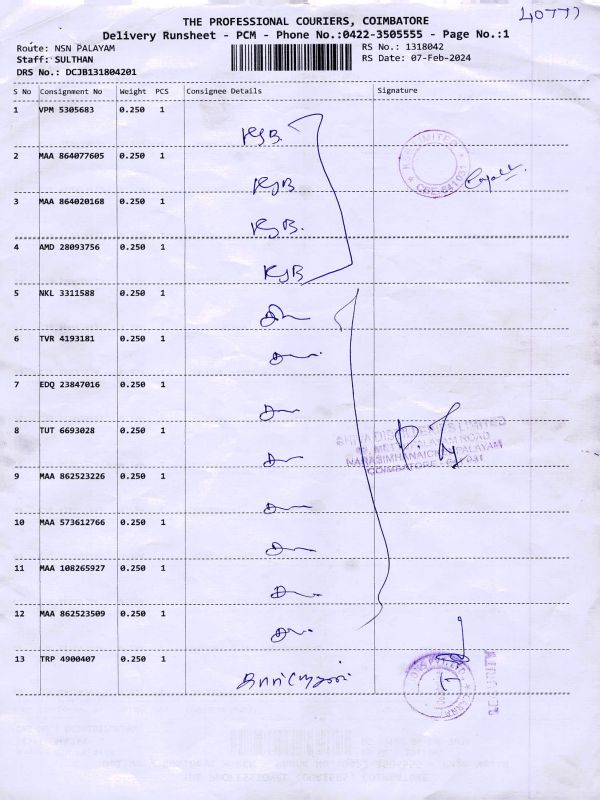 40777
THE PROFESSIONAL COURIERS, COIMBATORE
Delivery Runsheet - PCM - Phone No.:0422-3505555 - Page No.:1
Route: NSN PALAYAM
Staff: SULTHAN
DRS No.: DCJB131804201
RS No.: 1318042
RS Date: 07-Feb-2024
S No Consignment No Weight PCS Consignee Details Signature
1 VPM 5305683 0.250 1
KJB
2 MAA 864077605 0.250 1
KJB
3 MAA 864020168 0.250 1
KJB.
4 AMD 28093756 0.250 1
KJB
LIMITED
CBE-641 031
5 NKL 3311588 0.250 1
6 TVR 4193181 0.250 1
7 EDQ 23847016 0.250 1
8 TUT 6693028 0.250 1
LIMITED
ROAD
COIMBATORE - 641 031
9 MAA 862523226 0.250 1
10 MAA 573612766 0.250 1
11 MAA 108265927 0.250 1
12 MAA 862523509 0.250 1
13 TRP 4900407 0.250 1
SECURITY